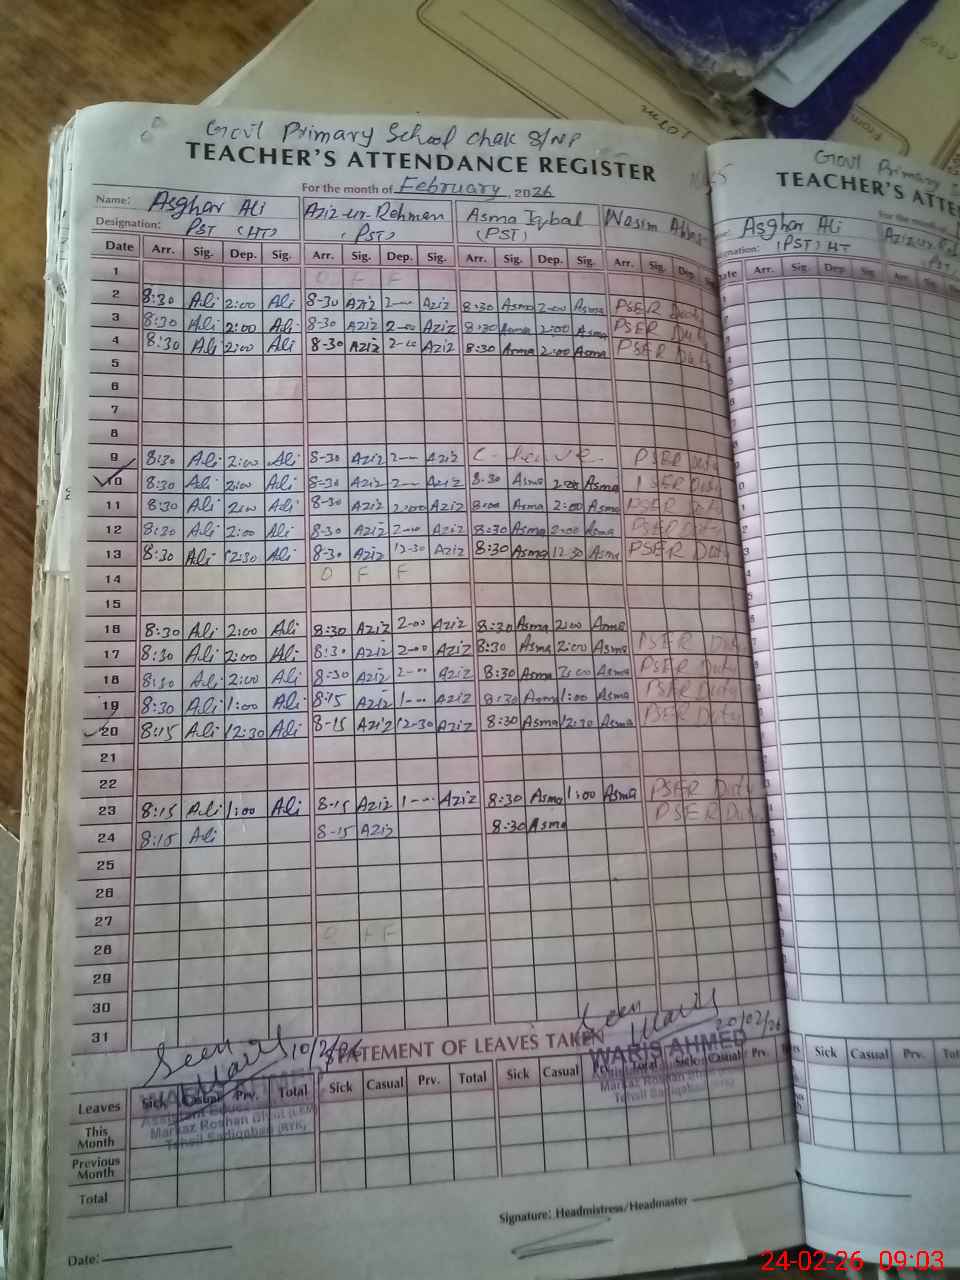 Govt Primary School Chak 8/NP
TEACHER'S ATTENDANCE REGISTER
For the month of February, 2026
Name: Asghar Ali Aziz-ur-Rehman Asma Iqbal Wasim
Designation: PST (HT) (PST) (PST)
Date Arr. Sig. Dep. Sig. Arr. Sig. Dep. Sig. Arr. Sig. Dep. Sig. Arr. Sig. Dep.
1 O F F
2 8:30 Ali 2:00 Ali 8-30 Aziz 2-- Aziz 8:30 Asma 2-00 Asma PSER Duty
3 8:30 Ali 2:00 Ali 8-30 Aziz 2-00 Aziz 8:30 Asma 2:00 Asma PSER Duty
4 8:30 Ali 2:00 Ali 8-30 Aziz 2-00 Aziz 8:30 Asma 2:00 Asma PSER Duty
5
6
7
8
9 8:30 Ali 2:00 Ali 8-30 Aziz 2-- Aziz C-leave PSER Duty
10 8:30 Ali 2:00 Ali 8-30 Aziz 2-- Aziz 8:30 Asma 2:00 Asma PSER Duty
11 8:30 Ali 2:00 Ali 8-30 Aziz 2:00 Aziz 8:00 Asma 2:00 Asma PSER Duty
12 8:30 Ali 2:00 Ali 8-30 Aziz 2-00 Aziz 8:30 Asma 2:00 Asma PSER Duty
13 8:30 Ali 12:30 Ali 8-30 Aziz 12-30 Aziz 8:30 Asma 12:30 Asma PSER Duty
14 O F F
15
16 8:30 Ali 2:00 Ali 8:30 Aziz 2-00 Aziz 8:30 Asma 2:00 Asma
17 8:30 Ali 2:00 Ali 8:30 Aziz 2-00 Aziz 8:30 Asma 2:00 Asma PSER Duty
18 8:30 Ali 2:00 Ali 8-30 Aziz 2-- Aziz 8:30 Asma 2:00 Asma PSER Duty
19 8:30 Ali 1:00 Ali 8-15 Aziz 1-- Aziz 8:30 Asma 1:00 Asma PSER Duty
20 8:15 Ali 12:30 Ali 8-15 Aziz 12-30 Aziz 8:30 Asma 12:30 Asma PSER Duty
21
22
23 8:15 Ali 1:00 Ali 8-15 Aziz 1-- Aziz 8:30 Asma 1:00 Asma PSER Duty
24 8:15 Ali 8-15 Aziz 8:30 Asma PSER Duty
25
26
27
28 O F F
29
30
31
Seen
Seen 20/02/26
STATEMENT OF LEAVES TAKEN
WARIS AHMED
Markaz Roshan Bhent
Tehsil Sadiqabad (RYK)
Tehsil Sadiqabad
Leaves Sick Casual Prv. Total Sick Casual Prv. Total Sick Casual Prv. Total Sick Casual Prv.
This Month
Previous Month
Total
Signature: Headmistress/Headmaster
Date:
Govt Primary
TEACHER'S ATTE
For the month of
Asghar Ali
(PST) HT
Arr. Sig. Dep. Sig. Arr. Sig.
Sick Casual Prv.
From
24-02-26 09:03